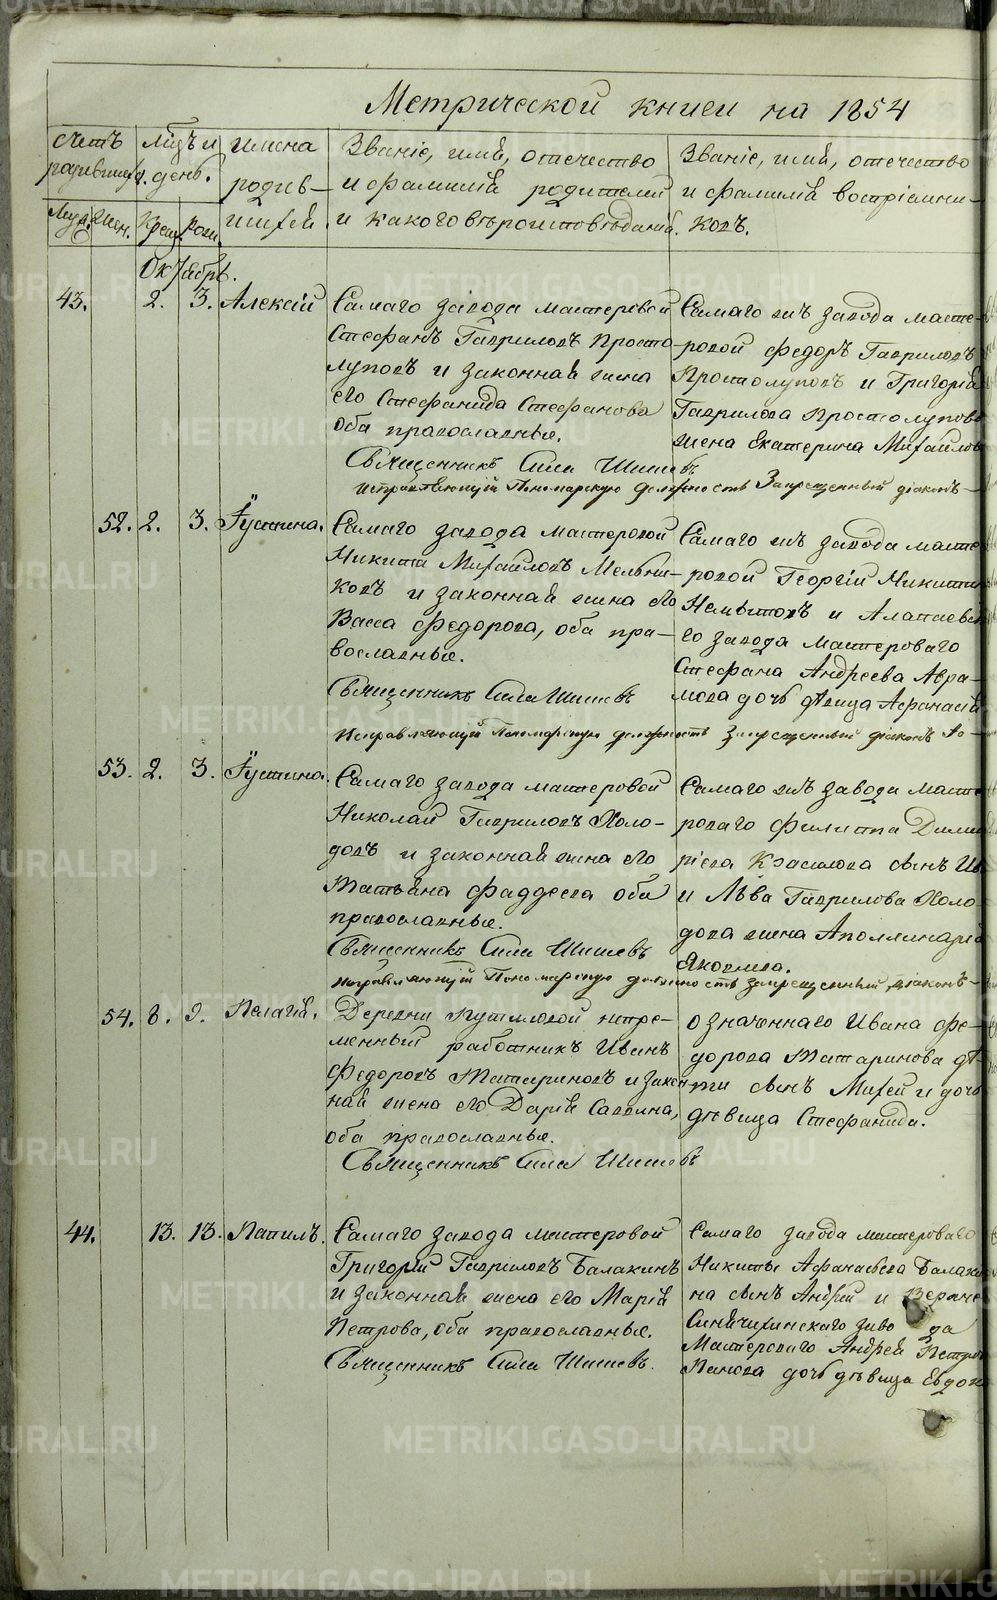 Метрической книги на 1854
Счетъ
родившихся.
Муж. Жен.
Мцъ и
день.
Крещ. Рожд.
имена
родив-
шихся.
Званіе, имя, отечество
и фамилія родителей
и какого вѣроисповѣданія.
Званіе, имя, отечество
и фамилія воспріемни-
ковъ.
Октябрь.
43. 2. 3. Алексій
Самаго завода мастеровой
Стефанъ Гавриловъ Просто-
луповъ и законная жена
его Стефанида Стефанова
оба православные.
Священникъ Сила Шишевъ
Исправляющій Пономарскую должность Запрещенный діаконъ
Самаго жъ завода масте-
ровой Федоръ Гавриловъ
Простолуповъ и Григорія
Гаврилова Простолупова
жена Екатерина Михайлов
52. 2. 3. Іустина.
Самаго завода мастеровой
Никита Михайловъ Мельни-
ковъ и законная жена его
Васса Федорова, оба пра-
вославные.
Священникъ Сила Шишевъ
Исправляющій Пономарскую должность Запрещенный діаконъ
Самаго жъ завода масте
ровой Георгій Никитин
и Алапаевска
го завода мастероваго
Стефана Андреева Авра-
мова дочь дѣвица Афанасія
53. 2. 3. Іустина.
Самаго завода мастеровой
Николай Гавриловъ Холо-
довъ и законная жена его
Татьяна Фаддеева оба
православные.
Священникъ Сила Шишевъ
Исправляющій Пономарскую должность запрещенный діаконъ
Самаго жъ завода масте
роваго Филиппа Дими
ріева Красилова сынъ
и Льва Гаврилова Холо
дова жена Аполлинарія
Яковлева.
54. 8. 9. Пелагія.
Деревни Путиловой непре-
менный работникъ Иванъ
Федоровъ Татариновъ и закон
ная жена его Дарія Саввина,
оба православные.
Священникъ Сила Шишевъ
означеннаго Ивана Фе-
дорова Татаринова дѣ-
ти сынъ Михей и дочь
дѣвица Стефанида.
44. 13. 13. Папилъ.
Самаго завода мастеровой
Григорій Гавриловъ Балакинъ
и законная жена его Марія
Петрова, оба православные.
Священникъ Сила Шишевъ.
Самаго завода мастероваго
Никиты Афанасьева Балаки
на сынъ Андрей и Верхне
Синячихинскаго заво да
Мастероваго Андрея Петров
Панова дочь дѣвица Евдок
METRIKI.GASO-URAL.RU